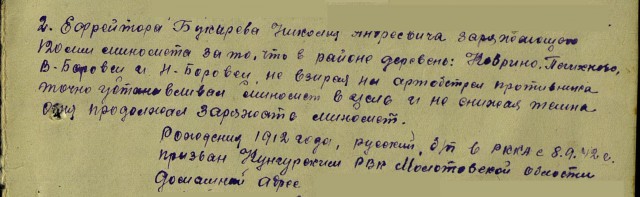 2. Ефрейтора Букирева Николая Андреевича заряжающего
120 мм миномета за то, что в районе деревень: Коврино, Пешково,
В-Боровей и Н-Боровей, не взирая на артобстрел противника
точно устанавливал миномет в цель и не снижая темпа
огня продолжал заряжать миномет.
Рождения 1912 года, русский, б/п в РККА с 8.9.42 г.
призван Кунгурским РВК Молотовской области
Домашний адрес